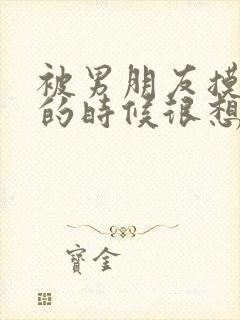 被男朋友摸
的时候很想
寶金